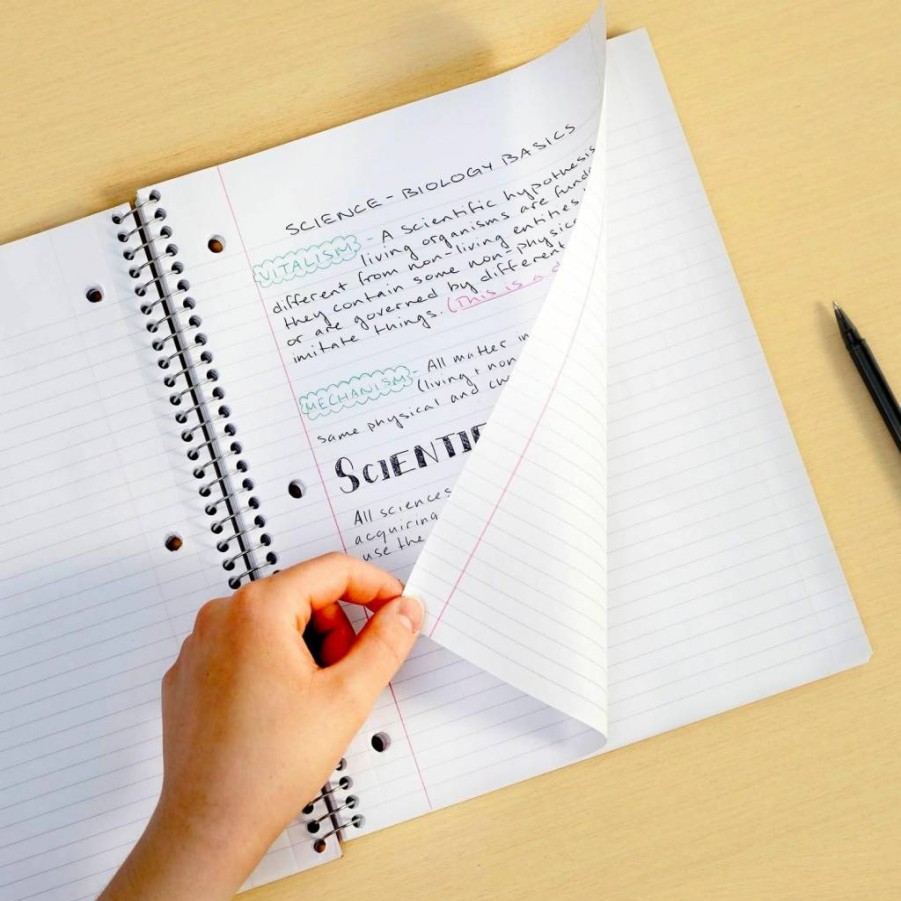 SCIENCE - BIOLOGY BASICS
VITALISM - A scientific hypothesis
living organisms are
different from non-living entities
they contain some non-physic
or are governed by different
imitate things. (This is a
MECHANISM - All matter in
(living + non
same physical and
SCIENTIF
All sciences
acquiring
use the